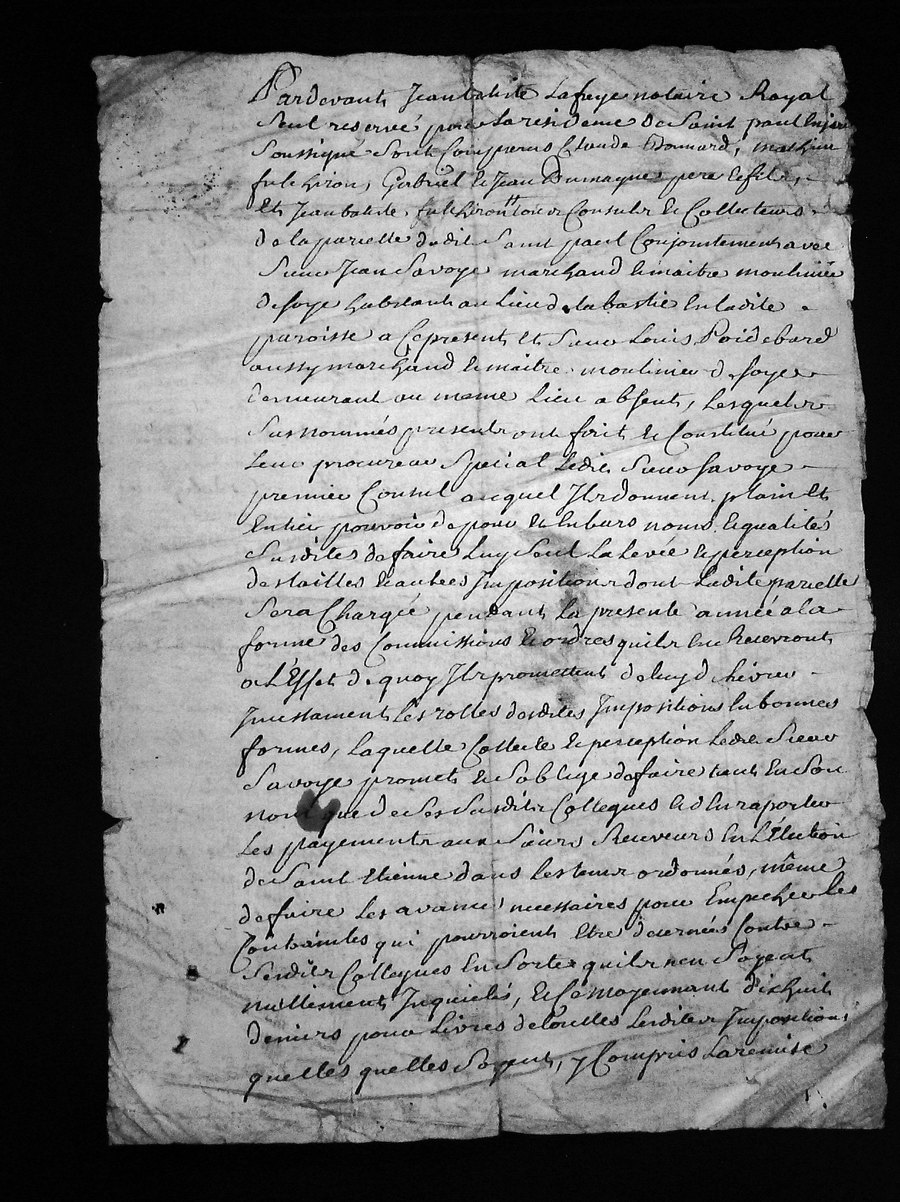 Pardevant Jeanbatiste Lafreye notaire Royal
Seul reservé pour La residence de Saint paul En
Soussigné Sont Comparus Claude Bonnard, mathieu
fulchiron, Gabriel & Jean Dumaque pere & fils,
Et Jeanbatiste fulchiron tous Consuls & Collecteurs
de la parcelle dudit Saint paul Conjointement avec
Sieur Jean Savoye marchand & maitre moulinier
de soye habitant au Lieu de la bastie En ladite
paroisse a Ce present Et Sieur Louis Poidebard
aussy marchand & maitre moulinier de soye
demeurant au meme Lieu absent, Lesquels
Susnommés presents ont fait & Constitué pour
Leur procureur Special Ledit Sieur Savoye
premier Consul auquel Ils donnent plain Et
Entier pouvoir de pour & En leurs noms & qualités
Susdites de faire Luy Seul La Levée & perception
des tailles & autres Impositions dont Ladite parcelle
Sera Chargée pendant La presente année a la
forme des Commissions & ordres quils En Recevront
a L'Effet de quoy Ils promettent de luy delivrer
Incessament Les rolles desdites Impositions En bonnes
formes, Laquelle Collecte & perception Ledit Sieur
Savoye promet & S'oblige de faire tant En Son
nom que de Ses Susdits Collegues & d'En raporter
Les payements aux Sieurs Receveurs En L'Election
de Saint Etienne dans Les tems ordonnés, même
de faire Les avances necessaires pour Empecher Les
Contraintes qui pourroient Etre decernées Contre
Sesdits Collegues En Sorte quils n'en Soyent
nullement Inquietés, & Ce moyennant dixhuit
deniers pour Livres de toutes Lesdites Impositions
quelles quelles Soyent, y Compris La remise